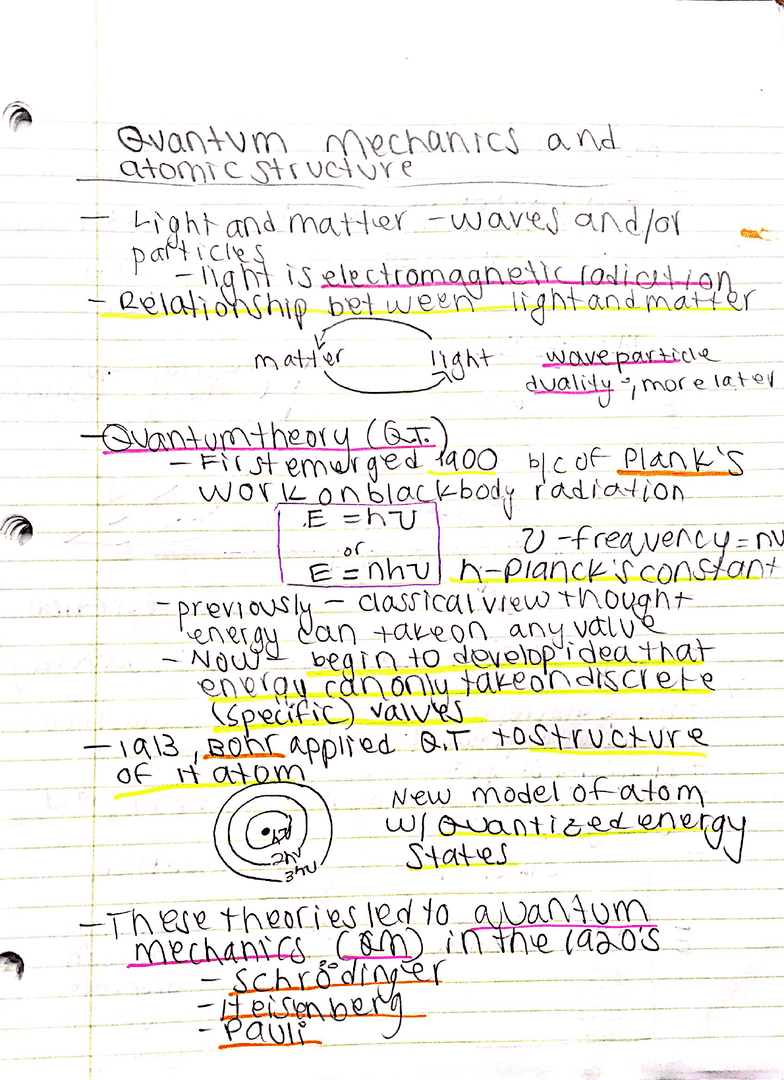 Quantum mechanics and
atomic structure
- Light and matter - waves and/or
particles
- light is electromagnetic radiation
- Relationship between light and matter
matter light wave particle
duality -, more later
- Quantum theory (Q.T.)
- First emerged 1900 b/c of Plank's
work on blackbody radiation
E = hν
or
E = nhν
ν - frequency = nu
h - Planck's constant
- previously - classical view thought
energy can take on any value
- Now - begin to develop idea that
energy can only take on discrete
(specific) values
- 1913, Bohr applied Q.T to structure
of H atom
hν
2hν
3hν
New model of atom
w/ quantized energy
states
- These theories led to quantum
mechanics (QM) in the 1920's
- Schrödinger
- Heisenberg
- Pauli